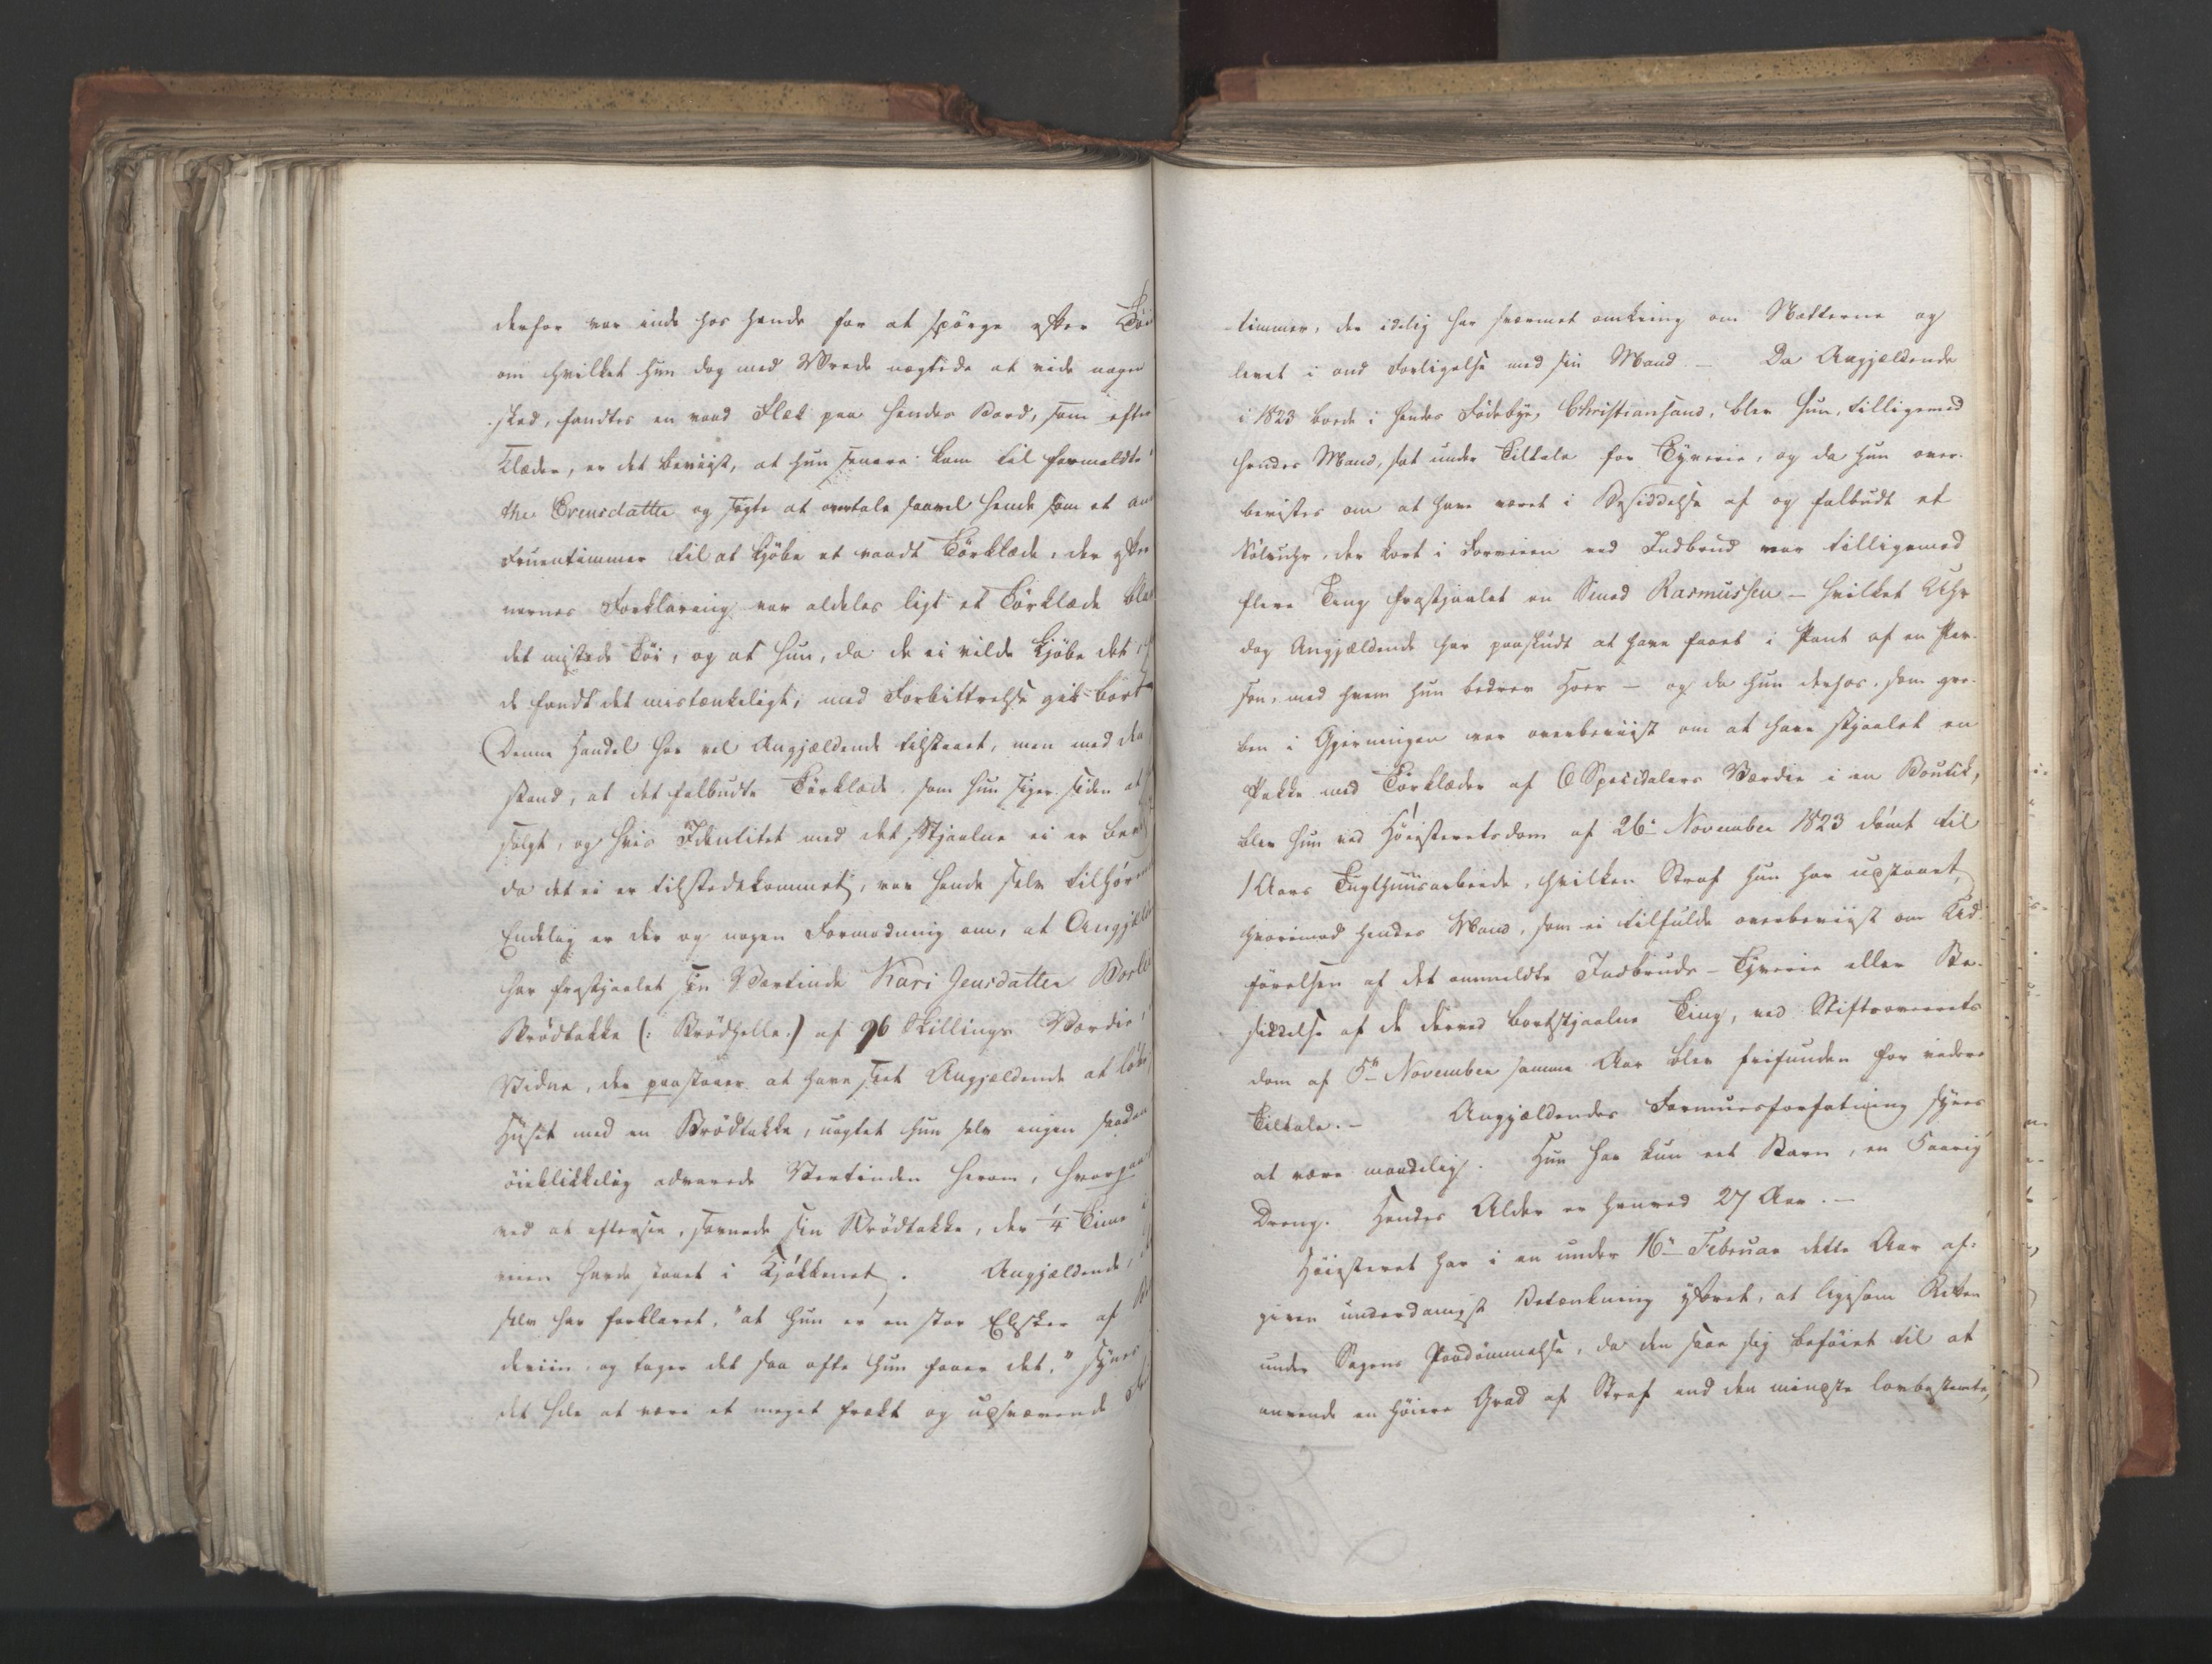 derfor var inde hos hende for at spörge efter Töi
om hvilket hun dog med Vrede nægtede at vide nogen
sked, fandtes en vaad Flæk paa hendes Bord, som efter
Klæder, er det beviist, at hun senere kom til formeldte
the Evensdatter og søgte at overtale saavel hende som et an
Fruentimmer til at kjöbe et vaadt Törklæde, der efter
nernes Forklaring var aldeles ligt et Törklæde blan
det mistede Töi, og at hun, da de ei vilde kjöbe det,
de fandt det mistænkeligt, med Forbittrelse gik bort
Denne Handel har vel Angjældende tilstaaet, men med den
stand, at det falbudte Törklæde, som hun siger siden at
solgt, og hvis Identitet med det Stjaalne ei er bev
da det ei er tilstedekommet, var hende selv tilhøren
Endelig er der og nogen Formodning om, at Angjæld
har frastjaalet sin Værtinde Kari Jensdatter
Brödtakke (: Brödhelle.) af 96 Skillings Værdie,
Vidne, der paastaaer at have seet Angjældende at löbe
Huset med en Brödtakke, uagtet hun selv ingen saadan
öieblikkelig advarede Vertinden herom, hvorpaa
ved at eftersee, savnede sin Brödtakke, der 1/4 Time
veien havde staaet i Kjøkkenet. Angjældende,
selv har forklaret, "at hun er en stor Elsker af Br
deviin, og tager det saa ofte hun faaer det," synes
det hele at være et meget frækt og udsvævende
timmer, der idelig har sværmet omkring om Nætterne og
levet i ond Forligelse med sin Mand. – Da Angjældende
i 1823 boede i hendes Födebye, Christiansand, blev hun, tilligemed
hendes Mand, sat under Tiltale for Tyverie, og da hun over-
bevistes om at have været i Besiddelse af og falbudt et
Sölvuhr, der kort i Forveien ved Indbrud var tilligemed
flere Ting frastjaalet en Smed Rasmussen – hvilket Uhr
dog Angjældende har paaskudt at have faaet i Pant af en Per-
son, med hvem hun bedrev Hoer – og da hun derhos, som gre-
ben i Gjerningen var overbeviist om at have stjaalet en
Pakke med Törklæder af 6 Speciedalers Værdie i en Boutik,
blev hun ved Höiesteretsdom af 26de November 1823 dömt til
1 Aars Tugthuusarbeide, hvilken Straf hun har udstaaet,
hvorimod hendes Mand, som ei tilfulde overbeviist om Ud-
förelsen af det anmeldte Indbruds-Tyverie eller Be-
siddelse af de derved bortstjaalne Ting, ved Stiftsoverrets
dom af 5te November samme Aar blev frifunden for videre
Tiltale. – Angjældendes Formuesforfatning synes
at være maadelig. Hun har kun eet Barn, en 5aarig
Dreng. Hendes Alder er henved 27 Aar. –
Höiesteret har i en under 16de Februar dette Aar af-
given underdanigst Betænkning yttret, at ligesom Retten
under Sagens Paadömmelse, da den saae sig beföiet til at
anvende en höiere Grad af Straf end den mindste lovbestemte,